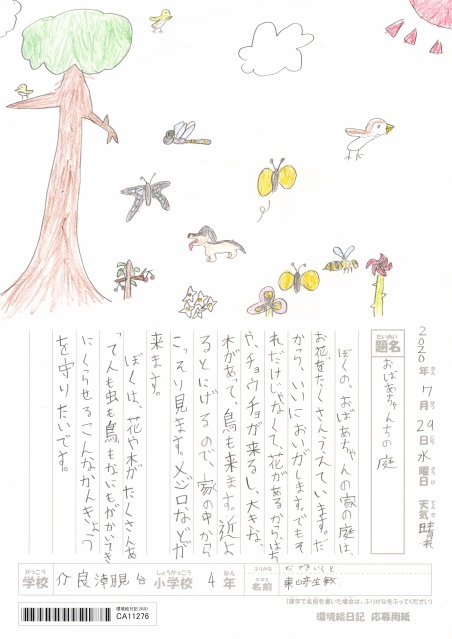 2020年7月29日水曜日 天気 晴れ
だいめい
題名
おばあちゃんちの庭
ぼくの、おばあちゃんの家の庭は、
お花をたくさんうえています。だ
から、いいにおいがします。でもそ
れだけじゃなくて、花があるからはち
や、チョウチョが来るし、大きな
木があって、鳥も来ます。近よ
るとにげるので、家の中から
こっそり見ます。メジロなどが
来ます。
ぼくは、花や木がたくさんあ
って人も虫も鳥もなにもがかいてき
にくらせるこんなかんきょう
を守りたいです。
がっこう
学校
しょうがっこう
小学校
4
ねん
年
ふりがな
なまえ
名前
(漢字で名前を書いた場合は、ふりがなをふってください)
環境絵日記 2020
CA11276
環境絵日記 応募用紙